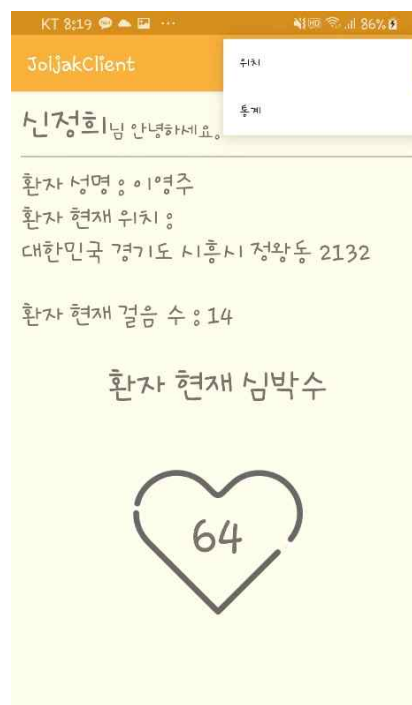 KT 8:19 86%
JoljakClient
위치
통계
신정희님 안녕하세요.
환자 성명 : 이영주
환자 현재 위치 :
대한민국 경기도 시흥시 정왕동 2132
환자 현재 걸음 수 : 14
환자 현재 심박수
64